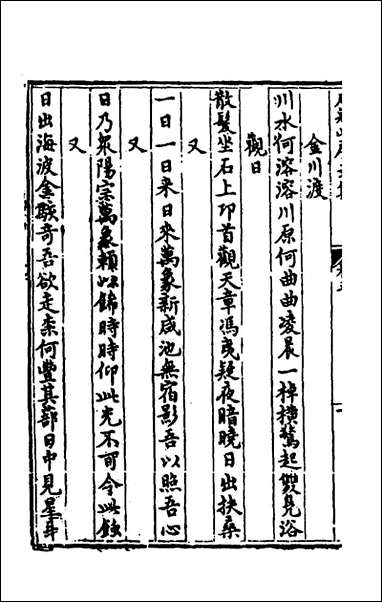 金川渡
川水何溶溶川原何曲曲淩晨一棹橫驚起雙鳧浴
觀日
散髮坐石上卬首觀天章馮夷疑夜暗曉日出扶桑
又
一日一日来日來萬象新咸池無宿影吾以照吾心
又
日乃衆陽宗萬象賴以飾時時仰此光不可令此蝕
又
日出海波金駭奇吾欲走柰何豐其蔀日中見星斗